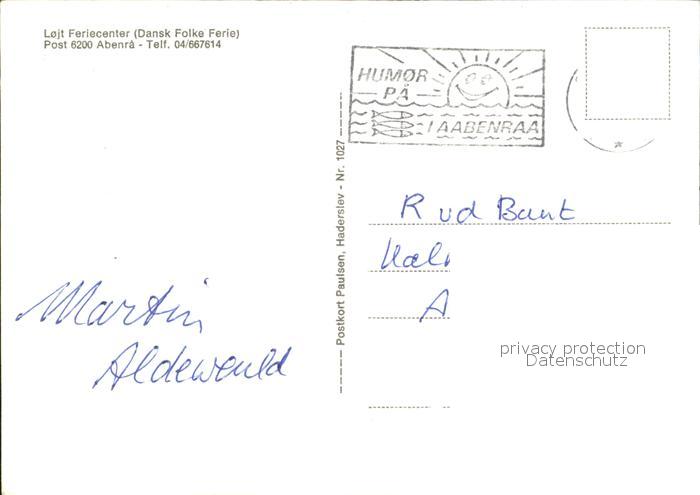 Løjt Feriecenter (Dansk Folke Ferie)
Post 6200 Abenrå - Telf. 04/667614
HUMØR
PÅ
I AABENRAA
Postkort Paulsen, Haderslev - Nr. 1027
Rud Bant
A
privacy protection
Datenschutz
Martin
Aldeweuld